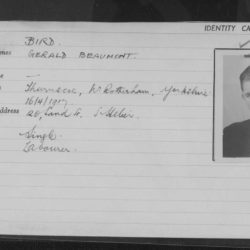 IDENTITY CA
BIRD.
mes GERALD BEAUMONT.
—
Nr Rotherham, Yorkshire
16/4/1917.
address 20, Sand St. St Helier.
Single.
Labourer.